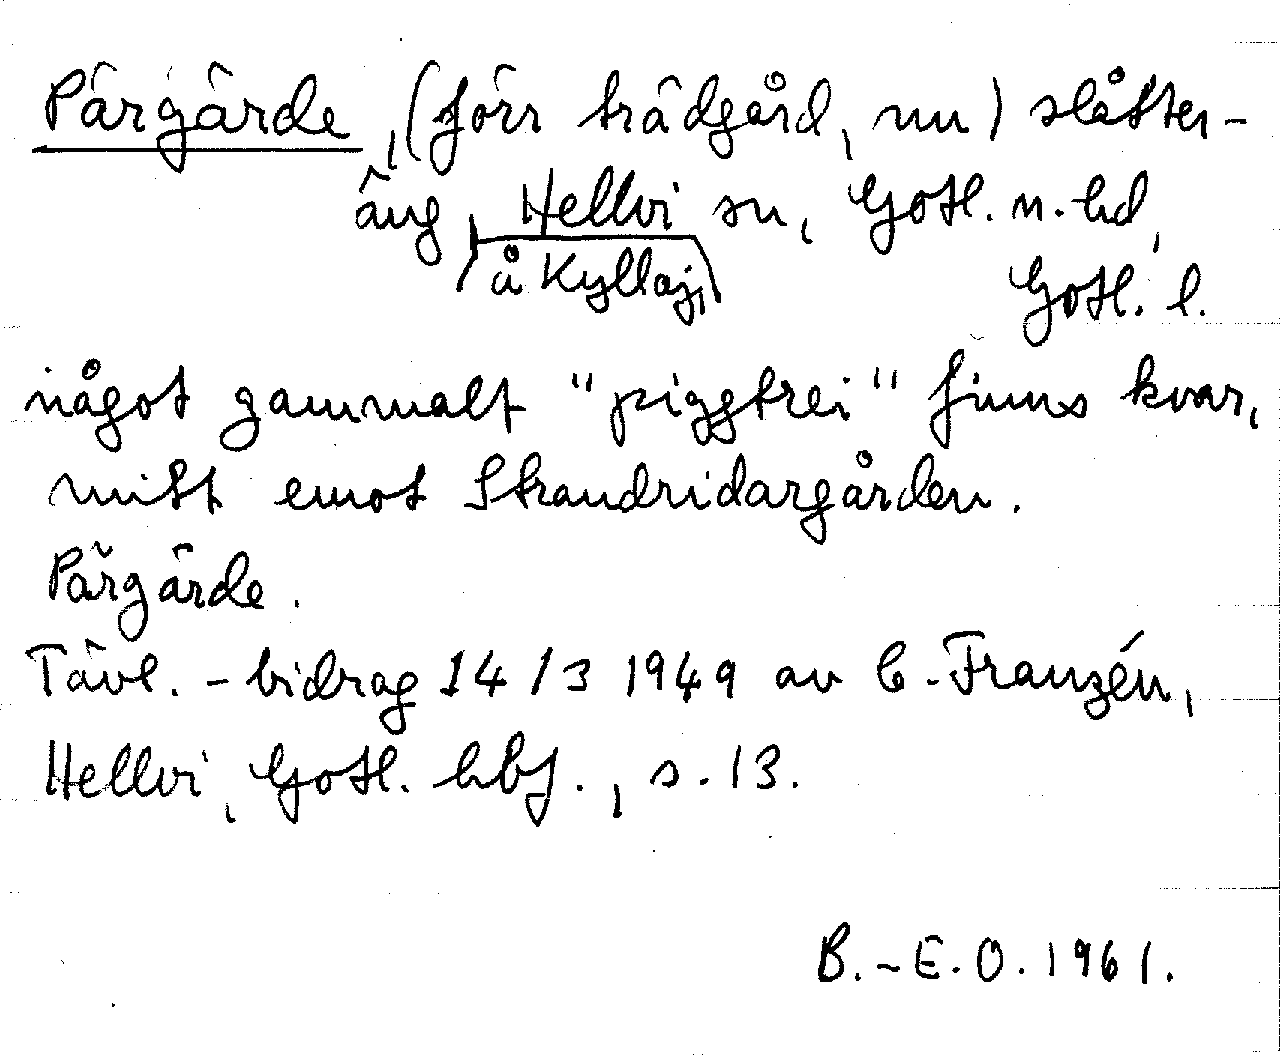 Pärgärde, (förr trädgård, nu) slåtter-
äng, Hellvi sn, Gotl. n. hd,
å Kyllaj,
Gotl. l.
något gammalt "piggtrei" finns kvar,
mitt emot Strandridargården.
Pärgärde.
Tävl. - bidrag 14/3 1949 av C. Franzén,
Hellvi, Gotl. hbf., s. 13.
B.-E.O. 1961.